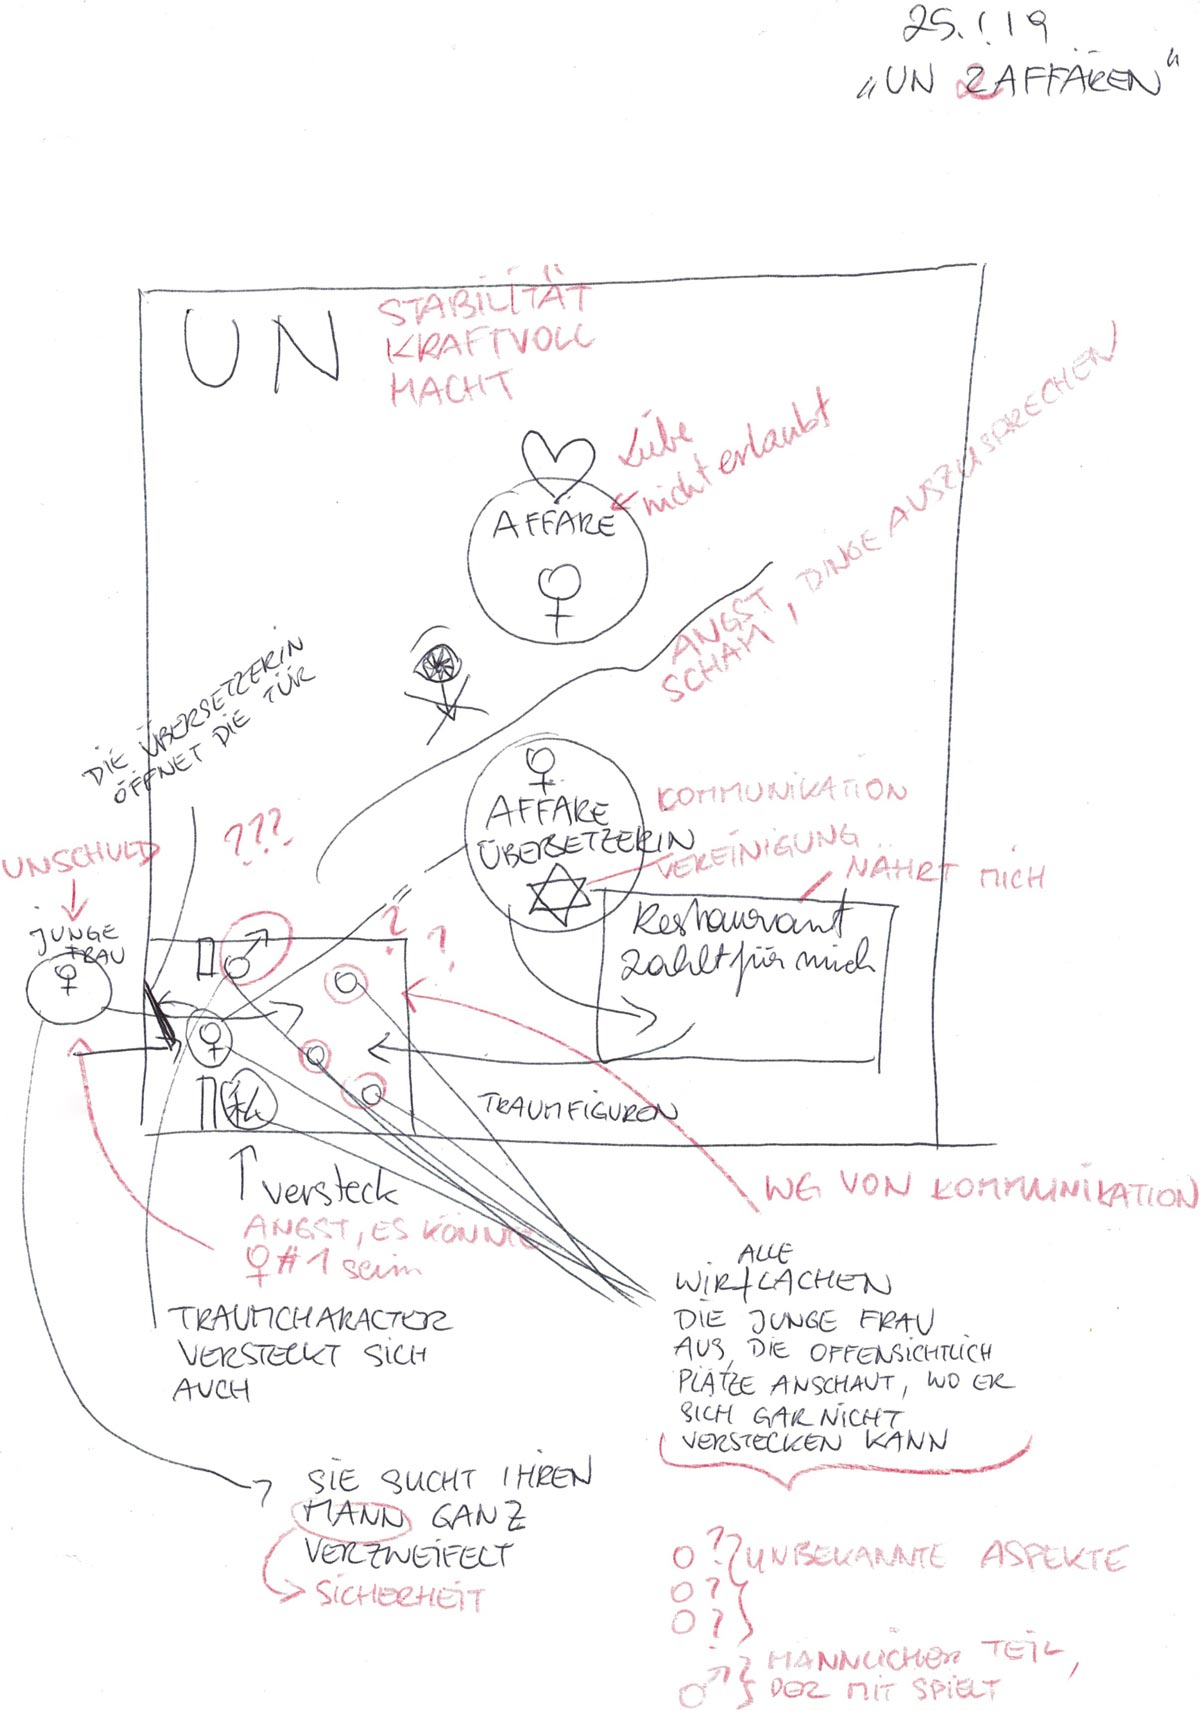 25.1.19
„UN 2 AFFÄREN"
UN
STABILITÄT
KRAFTVOLL
MACHT
Liebe
nicht erlaubt
AFFÄRE
ANGST, DINGE AUSZUSPRECHEN
SCHAM
DIE ÜBERSETZERIN
ÖFFNET DIE TÜR
AFFÄRE
ÜBERSETZERIN
KOMMUNIKATION
VEREINIGUNG
NÄHRT MICH
Restaurant
zahlt für mich
???
UNSCHULD
JUNGE
FRAU
?
?
TRAUMFIGUREN
WG VON KOMMUNIKATION
versteck
ANGST, ES KÖNNTE
♀ #1 sein
TRAUMCHARACTER
VERSTECKT SICH
AUCH
ALLE
WIR LACHEN
DIE JUNGE FRAU
AUS, DIE OFFENSICHTLICH
PLÄTZE ANSCHAUT, WO ER
SICH GAR NICHT
VERSTECKEN KANN
SIE SUCHT IHREN
MANN GANZ
VERZWEIFELT
SICHERHEIT
? UNBEKANNTE ASPEKTE
?
?
MÄNNLICHER TEIL,
DER MIT SPIELT